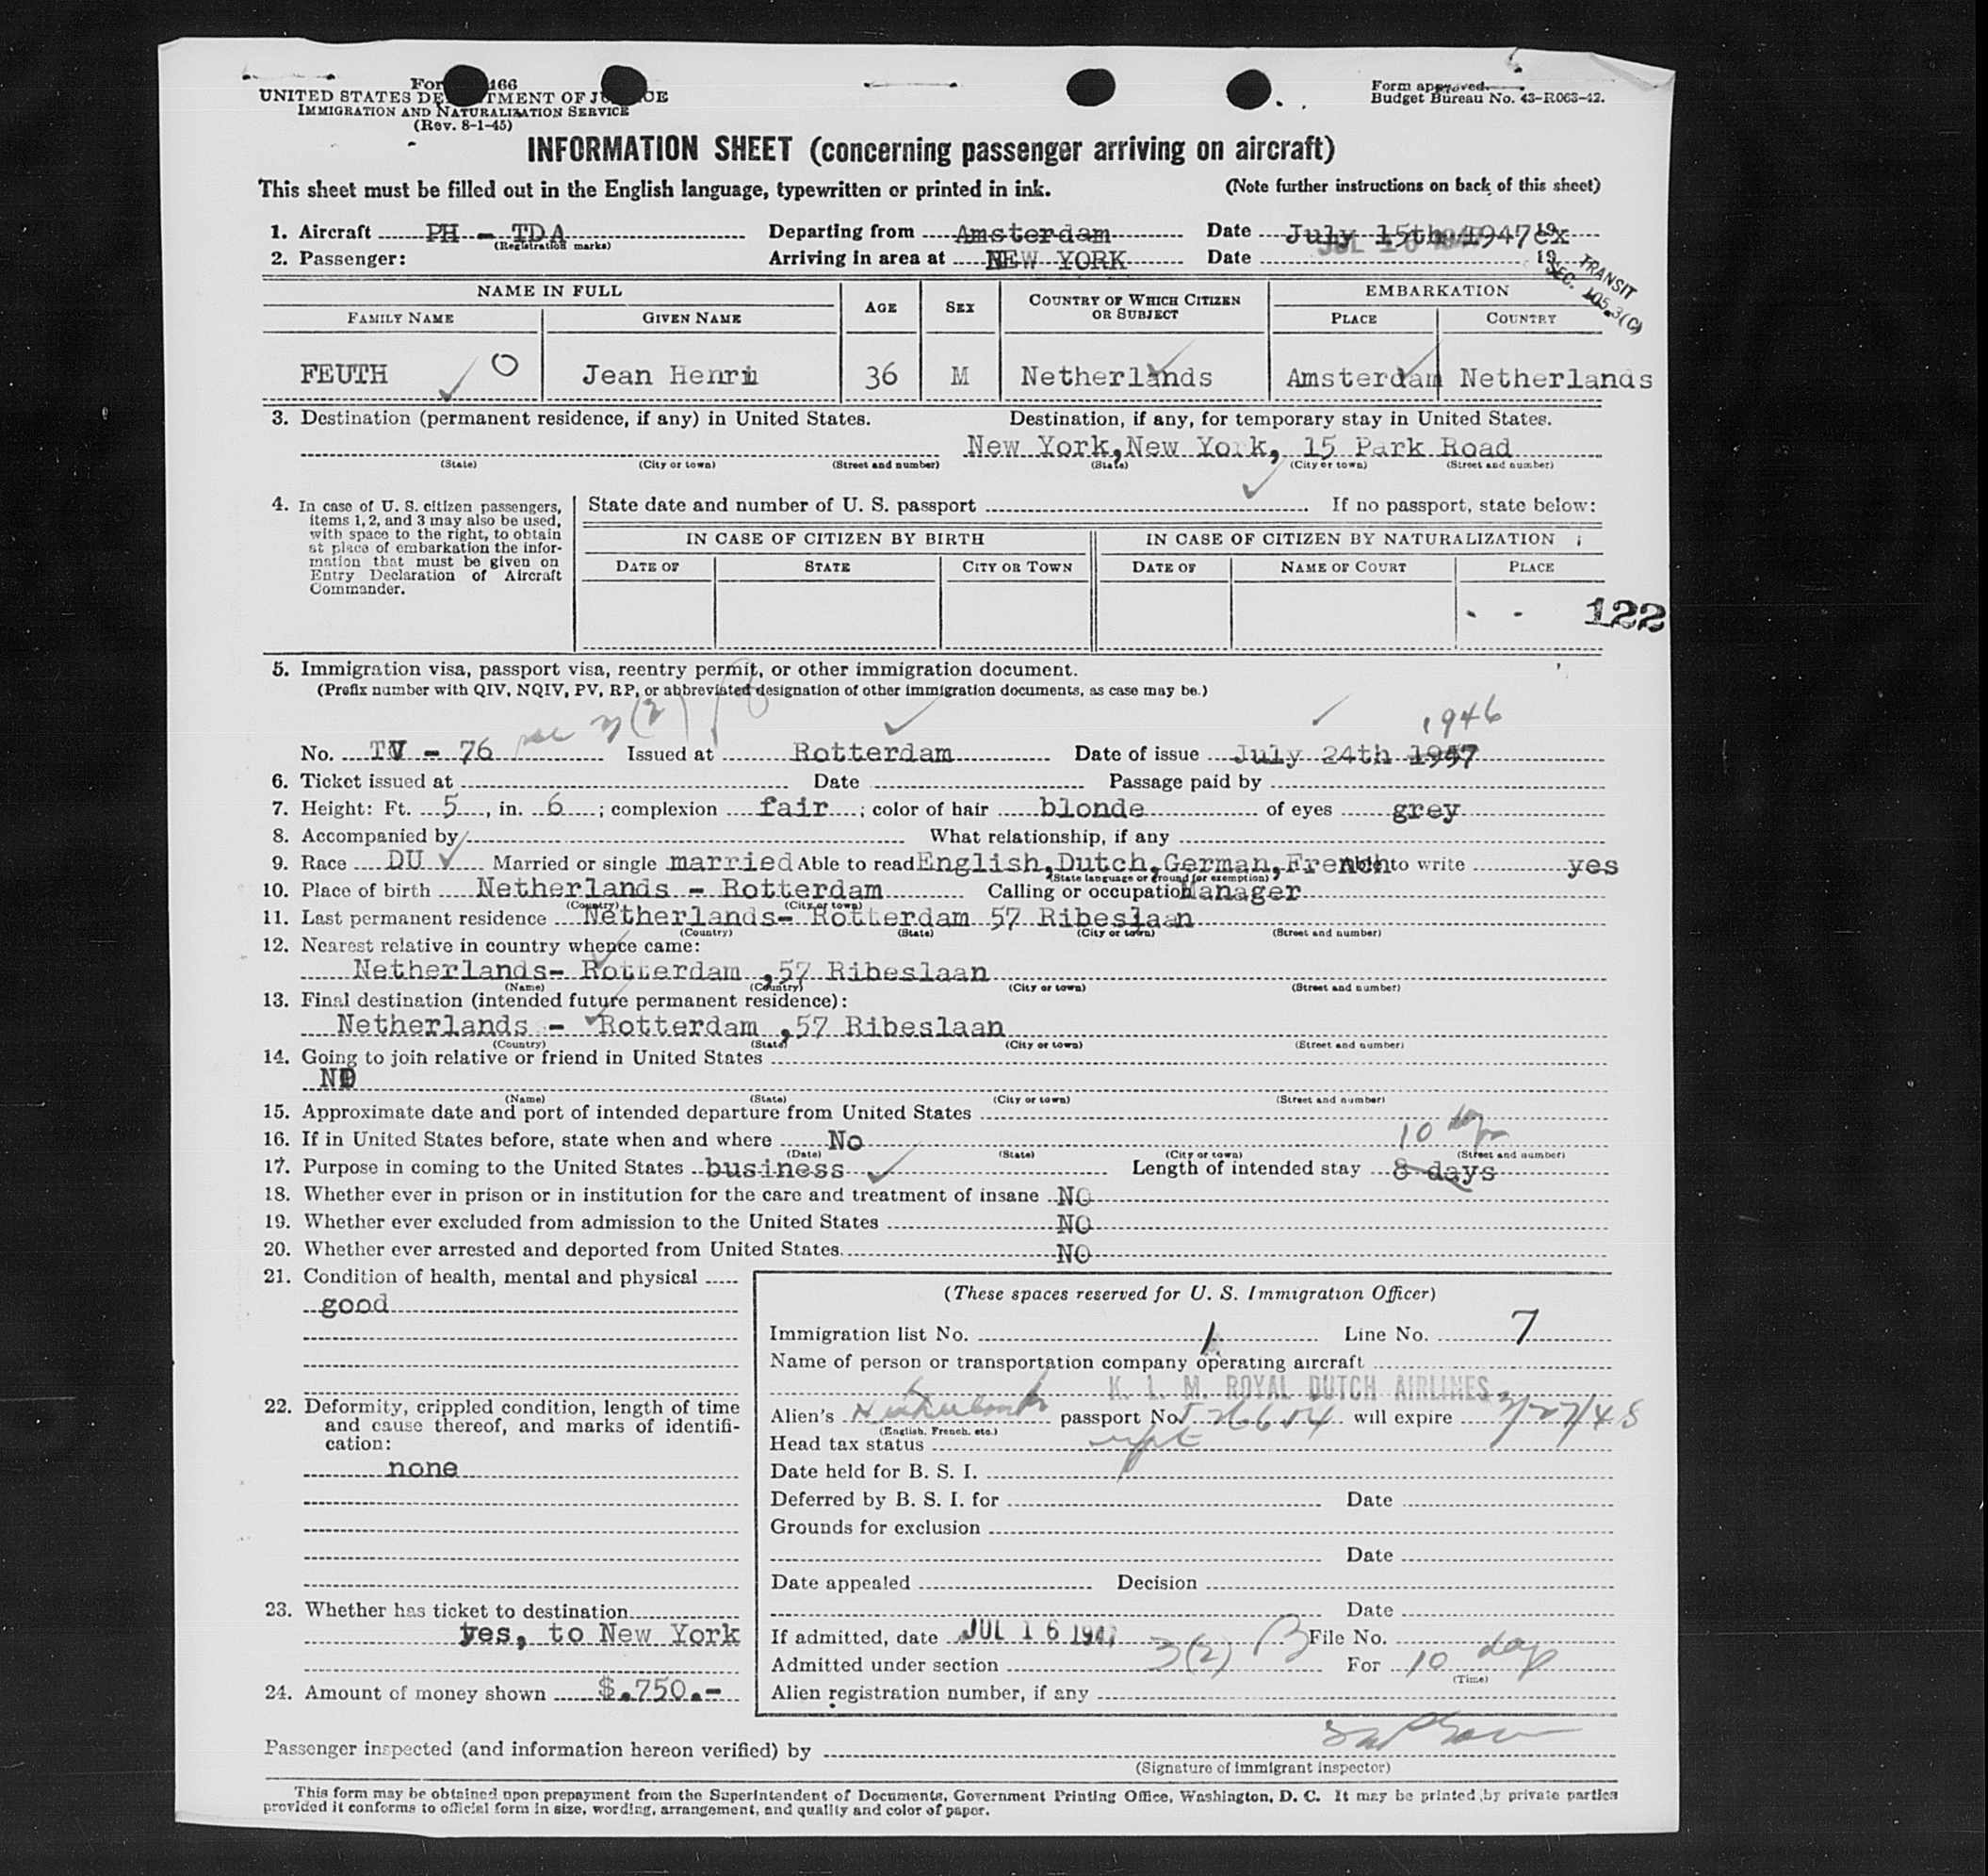 For 166
UNITED STATES DE TMENT OF JU CE
IMMIGRATION AND NATURALIZATION SERVICE
(Rev. 8-1-45)
Form approved.
Budget Bureau No. 43-R063-42.
INFORMATION SHEET (concerning passenger arriving on aircraft)
This sheet must be filled out in the English language, typewritten or printed in ink. (Note further instructions on back of this sheet)
1. Aircraft PH - TDA Departing from Amsterdam Date July 15th 1947 19
(Registration marks)
2. Passenger: Arriving in area at NEW YORK Date JUL 16 19
TRANSIT
SEC. 105.3(C)
NAME IN FULL AGE SEX COUNTRY OF WHICH CITIZEN OR SUBJECT EMBARKATION
FAMILY NAME GIVEN NAME PLACE COUNTRY
FEUTH O Jean Henri 36 M Netherlands Amsterdam Netherlands
3. Destination (permanent residence, if any) in United States. Destination, if any, for temporary stay in United States.
New York, New York, 15 Park Road
(State) (City or town) (Street and number) (State) (City or town) (Street and number)
4. In case of U. S. citizen passengers, items 1, 2, and 3 may also be used, with space to the right, to obtain at place of embarkation the information that must be given on Entry Declaration of Aircraft Commander.
State date and number of U. S. passport If no passport, state below:
IN CASE OF CITIZEN BY BIRTH IN CASE OF CITIZEN BY NATURALIZATION
DATE OF STATE CITY OR TOWN DATE OF NAME OF COURT PLACE
122
5. Immigration visa, passport visa, reentry permit, or other immigration document.
(Prefix number with QIV, NQIV, PV, RP, or abbreviated designation of other immigration documents, as case may be.)
3(2) 1946
No. TV - 76 Issued at Rotterdam Date of issue July 24th 1947
6. Ticket issued at Date Passage paid by
7. Height: Ft. 5, in. 6; complexion fair; color of hair blonde of eyes grey
8. Accompanied by What relationship, if any
9. Race DU Married or single married Able to read English, Dutch, German, French Able to write yes
(State language or ground for exemption)
10. Place of birth Netherlands - Rotterdam Calling or occupation Manager
(Country) (City or town)
11. Last permanent residence Netherlands- Rotterdam 57 Ribeslaan
(Country) (State) (City or town) (Street and number)
12. Nearest relative in country whence came:
Netherlands- Rotterdam ,57 Ribeslaan
(Name) (Country) (City or town) (Street and number)
13. Final destination (intended future permanent residence):
Netherlands - Rotterdam ,57 Ribeslaan
(Country) (State) (City or town) (Street and number)
14. Going to join relative or friend in United States
NO
(Name) (State) (City or town) (Street and number)
15. Approximate date and port of intended departure from United States
16. If in United States before, state when and where No 10 days
(Date) (State) (City or town) (Street and number)
17. Purpose in coming to the United States business Length of intended stay 8 days
18. Whether ever in prison or in institution for the care and treatment of insane NO
19. Whether ever excluded from admission to the United States NO
20. Whether ever arrested and deported from United States. NO
21. Condition of health, mental and physical
good
22. Deformity, crippled condition, length of time and cause thereof, and marks of identification:
none
23. Whether has ticket to destination
yes, to New York
24. Amount of money shown $.750.-
(These spaces reserved for U. S. Immigration Officer)
Immigration list No. 1 Line No. 7
Name of person or transportation company operating aircraft
K. L. M. ROYAL DUTCH AIRLINES
Alien's Netherlands passport No. will expire
(English, French, etc.)
Head tax status
Date held for B. S. I.
Deferred by B. S. I. for Date
Grounds for exclusion
Date
Date appealed Decision
Date
If admitted, date JUL 16 1947 File No.
Admitted under section 3(2) B For 10 days
(Time)
Alien registration number, if any
Passenger inspected (and information hereon verified) by
(Signature of immigrant inspector)
This form may be obtained upon prepayment from the Superintendent of Documents, Government Printing Office, Washington, D. C. It may be printed by private parties
provided it conforms to official form in size, wording, arrangement, and quality and color of paper.